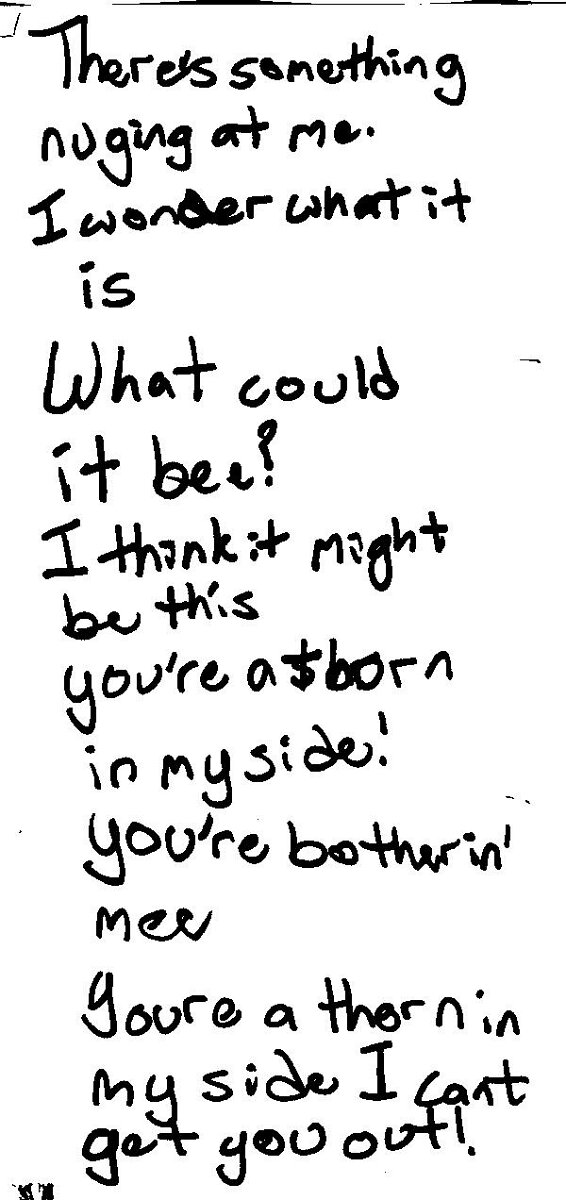 There's something
nuging at me.
I wonder what it
is
What could
it bee?
I think it might
be this
you're a thorn
in my side!
you're botherin'
mee
youre a thorn in
my side I cant
get you out!